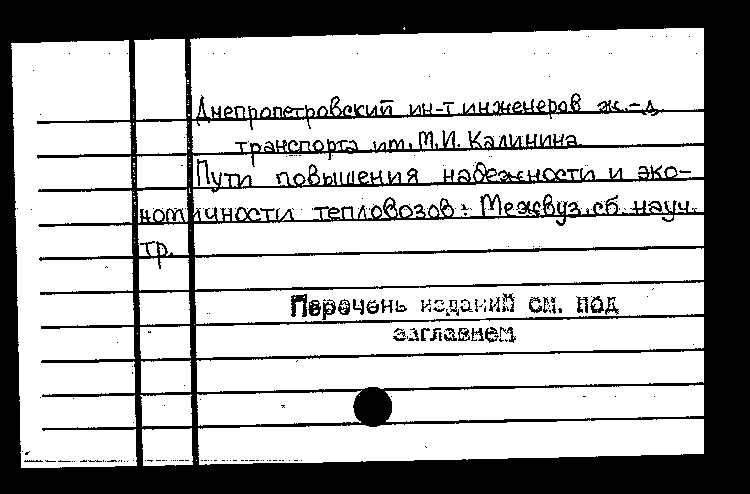 Днепропетровский ин-т инженеров ж.-д.
транспорта им. М.И. Калинина
Пути повышения надежности и эко-
номичности тепловозов: Межвуз. сб. науч.
тр.
Перечень изданий см. под
заглавием